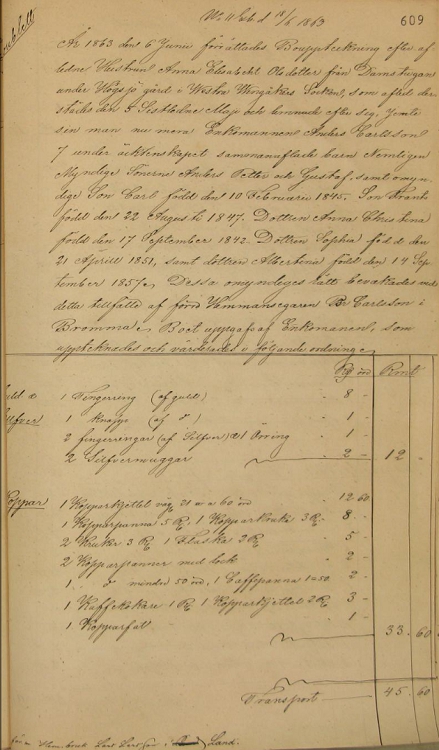 609
År 1863 den 6 Junii förrättades Bouppteckning efter af
ledne Hustrun Anna Elisabeth Olsdotter från Damstugan
under Högsjö gård i Westra Wingåkers Socken, som afled der
städes den 5 Sistledne Maji och lemnade efter sig, Jemte
sin man nu mera Enkomannen Anders Carlsson
7 under äktenskapet sammanaflade barn Nemligen
Myndige Sönerne Anders Petter och Gustaf, samt omyn
dige Son Carl född den 10 Februarii 1845. Son Frans
född den 22 Augusti 1847. Dottren Anna Christina
född den 17 September 1842. Dottren Sophia född den
21 Aprill 1851, samt dottren Albertina född den 14 Sep
tember 1857. Dessa omyndiges rätt bevakades vid
detta tillfälle af Hemmansegaren Carlsson i
Bromma. Boet uppgafs af Enkomanen, som
upptecknades och värderades i följande ordning
Rd öre Rmt
1 Fingerring (af guld) - 8 -
1 Knapp (af d°) - 1 -
2 fingerringar (af Silfver) 1 Örring - 1 -
2 Silfvermuggar - 2 - 12 -
Koppar 1 Kopparkjettel 60 öre - 12 60
1 Kopparpanna 5 Rd, 1 Kopparkruka 3 Rd - 8 -
2 Krukor 3 Rd 1 Flaska 2 Rd - 5 -
2 Kopparpannor med lock - 2 -
1 d° mindre 50 öre, 1 Caffepanna 1=50 - 2 -
1 Kaffekokare 1 Rd 1 Kopparkjettel 2 Rd - 3 -
1 Kopparfat - 1 -
33 60
Transport 45 60